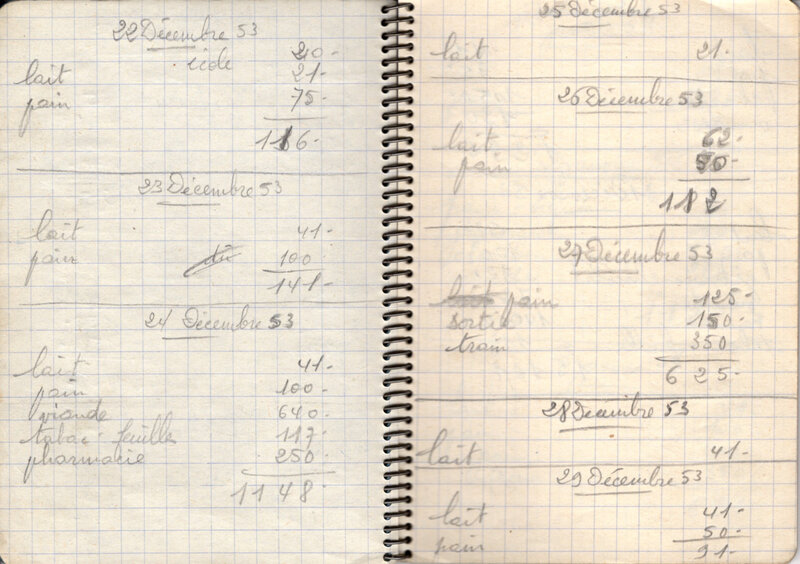 22 Décembre 53
école 20-
lait 21-
pain 75-
116-
23 Décembre 53
lait 41-
pain 100-
141-
24 Décembre 53
lait 41-
pain 100-
viande 640-
tabac feuilles 117-
pharmacie 250-
1148-
25 Décembre 53
lait 21-
26 Décembre 53
lait 62-
pain
112
27 Décembre 53
pain 125-
sortie 150-
train 350
625-
28 Décembre 53
lait 41-
29 Décembre 53
lait 41-
pain 50-
91-